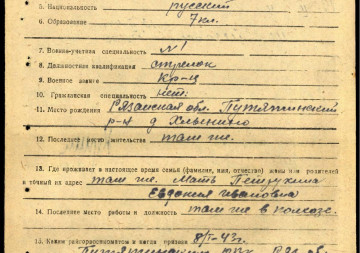 5. Национальность русский
6. Образование 7 кл.
7. Военно-учетная специальность №1
8. Должностная квалификация стрелок
9. Военное звание кр-ц
10. Гражданская специальность нет.
11. Место рождения Рязанская обл. Путятинский
р-н д
12. Последнее место жительства там же.
13. Где проживает в настоящее время семья (фамилия, имя, отчество) жены или родителей
и точный их адрес там же. Мать
Евдокия Ивановна
14. Последнее место работы и должность там же в колхозе.
15. Каким райгорвоенкоматом и когда призван 8/I-43г.
Путятинским РВК Ряз. об.